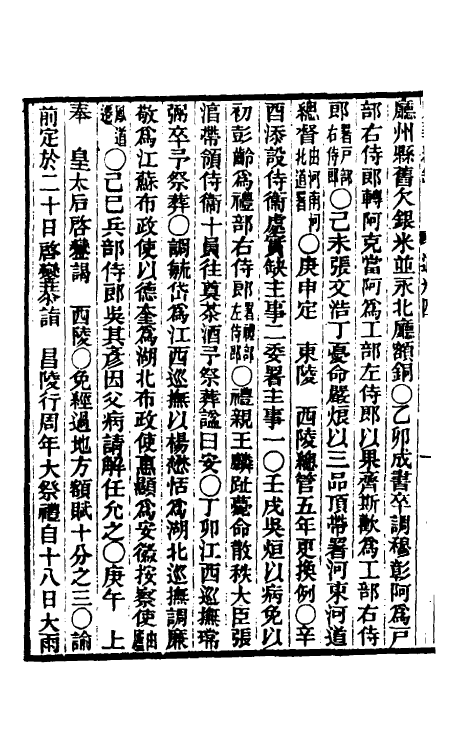 廳州縣舊欠銀米並永北廳額銅○乙卯成書卒調穆彰阿爲戶
部右侍郎轉阿克當阿爲工部左侍郎以果齊斯歡爲工部右侍
郎署戶部右侍郎○己未張文浩丁憂命嚴烺以三品頂帶署河東河道
總督由河南河北道署○庚申定 東陵 西陵總管五年更換例○辛
酉添設侍衞處實缺主事二委署主事一○壬戌吳烜以病免以
初彭齡爲禮部右侍郎署禮部左侍郎○禮親王麟趾薨命散秩大臣張
涫帶領侍衞十員往奠茶酒予祭葬諡曰安○丁卯江西巡撫瑺
弼卒予祭葬○調毓岱爲江西巡撫以楊懋恬爲湖北巡撫調廉
敬爲江蘇布政使以德奎爲湖北布政使惠顯爲安徽按察使由廬鳳道
遷○己巳兵部侍郎吳其彥因父病請解任允之○庚午 上
奉 皇太后啓鑾謁 西陵○免經過地方額賦十分之三○諭
前定於二十日啓鑾恭詣 昌陵行周年大祭禮自十八日大雨